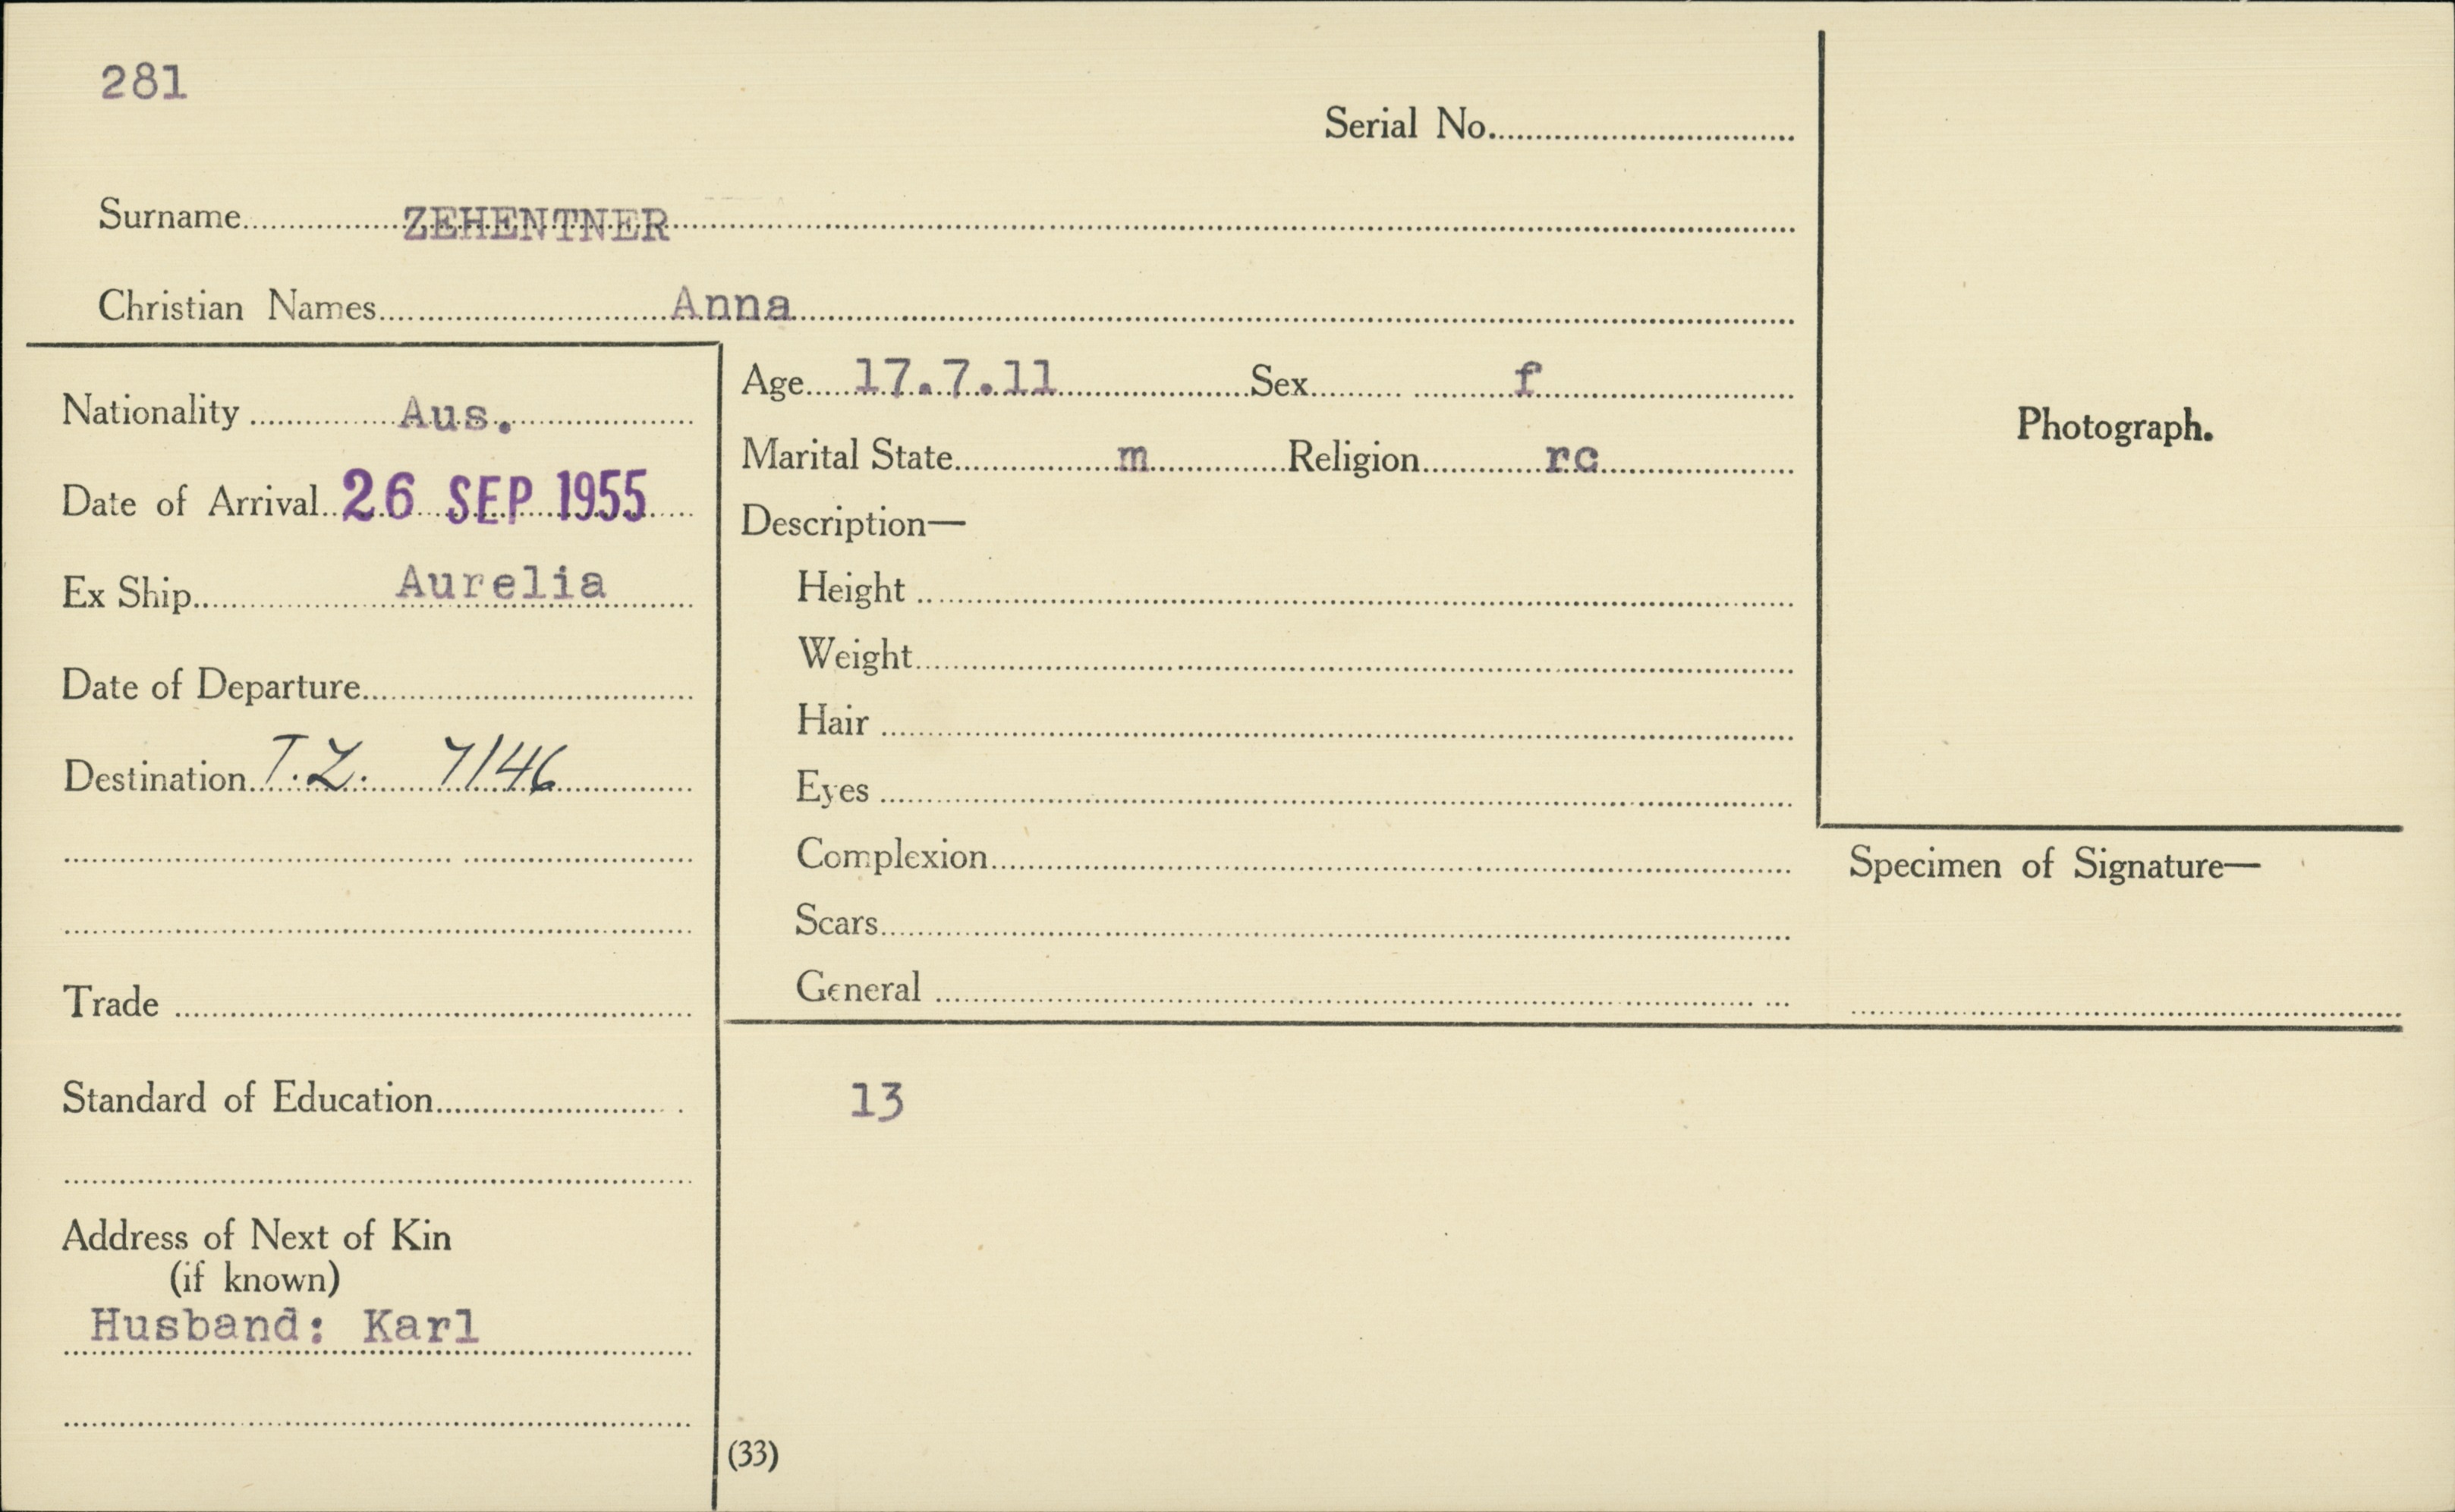 281
Serial No.
Surname ZEHENTNER
Christian Names Anna
Nationality Aus.
Date of Arrival 26 SEP 1955
Ex Ship Aurelia
Date of Departure
Destination T.Z. 7/46
Trade
Standard of Education
Address of Next of Kin
(if known)
Husband: Karl
Age 17.7.11 Sex f
Marital State m Religion rc
Description—
Height
Weight
Hair
Eyes
Complexion
Scars
General
13
(33)
Photograph.
Specimen of Signature—